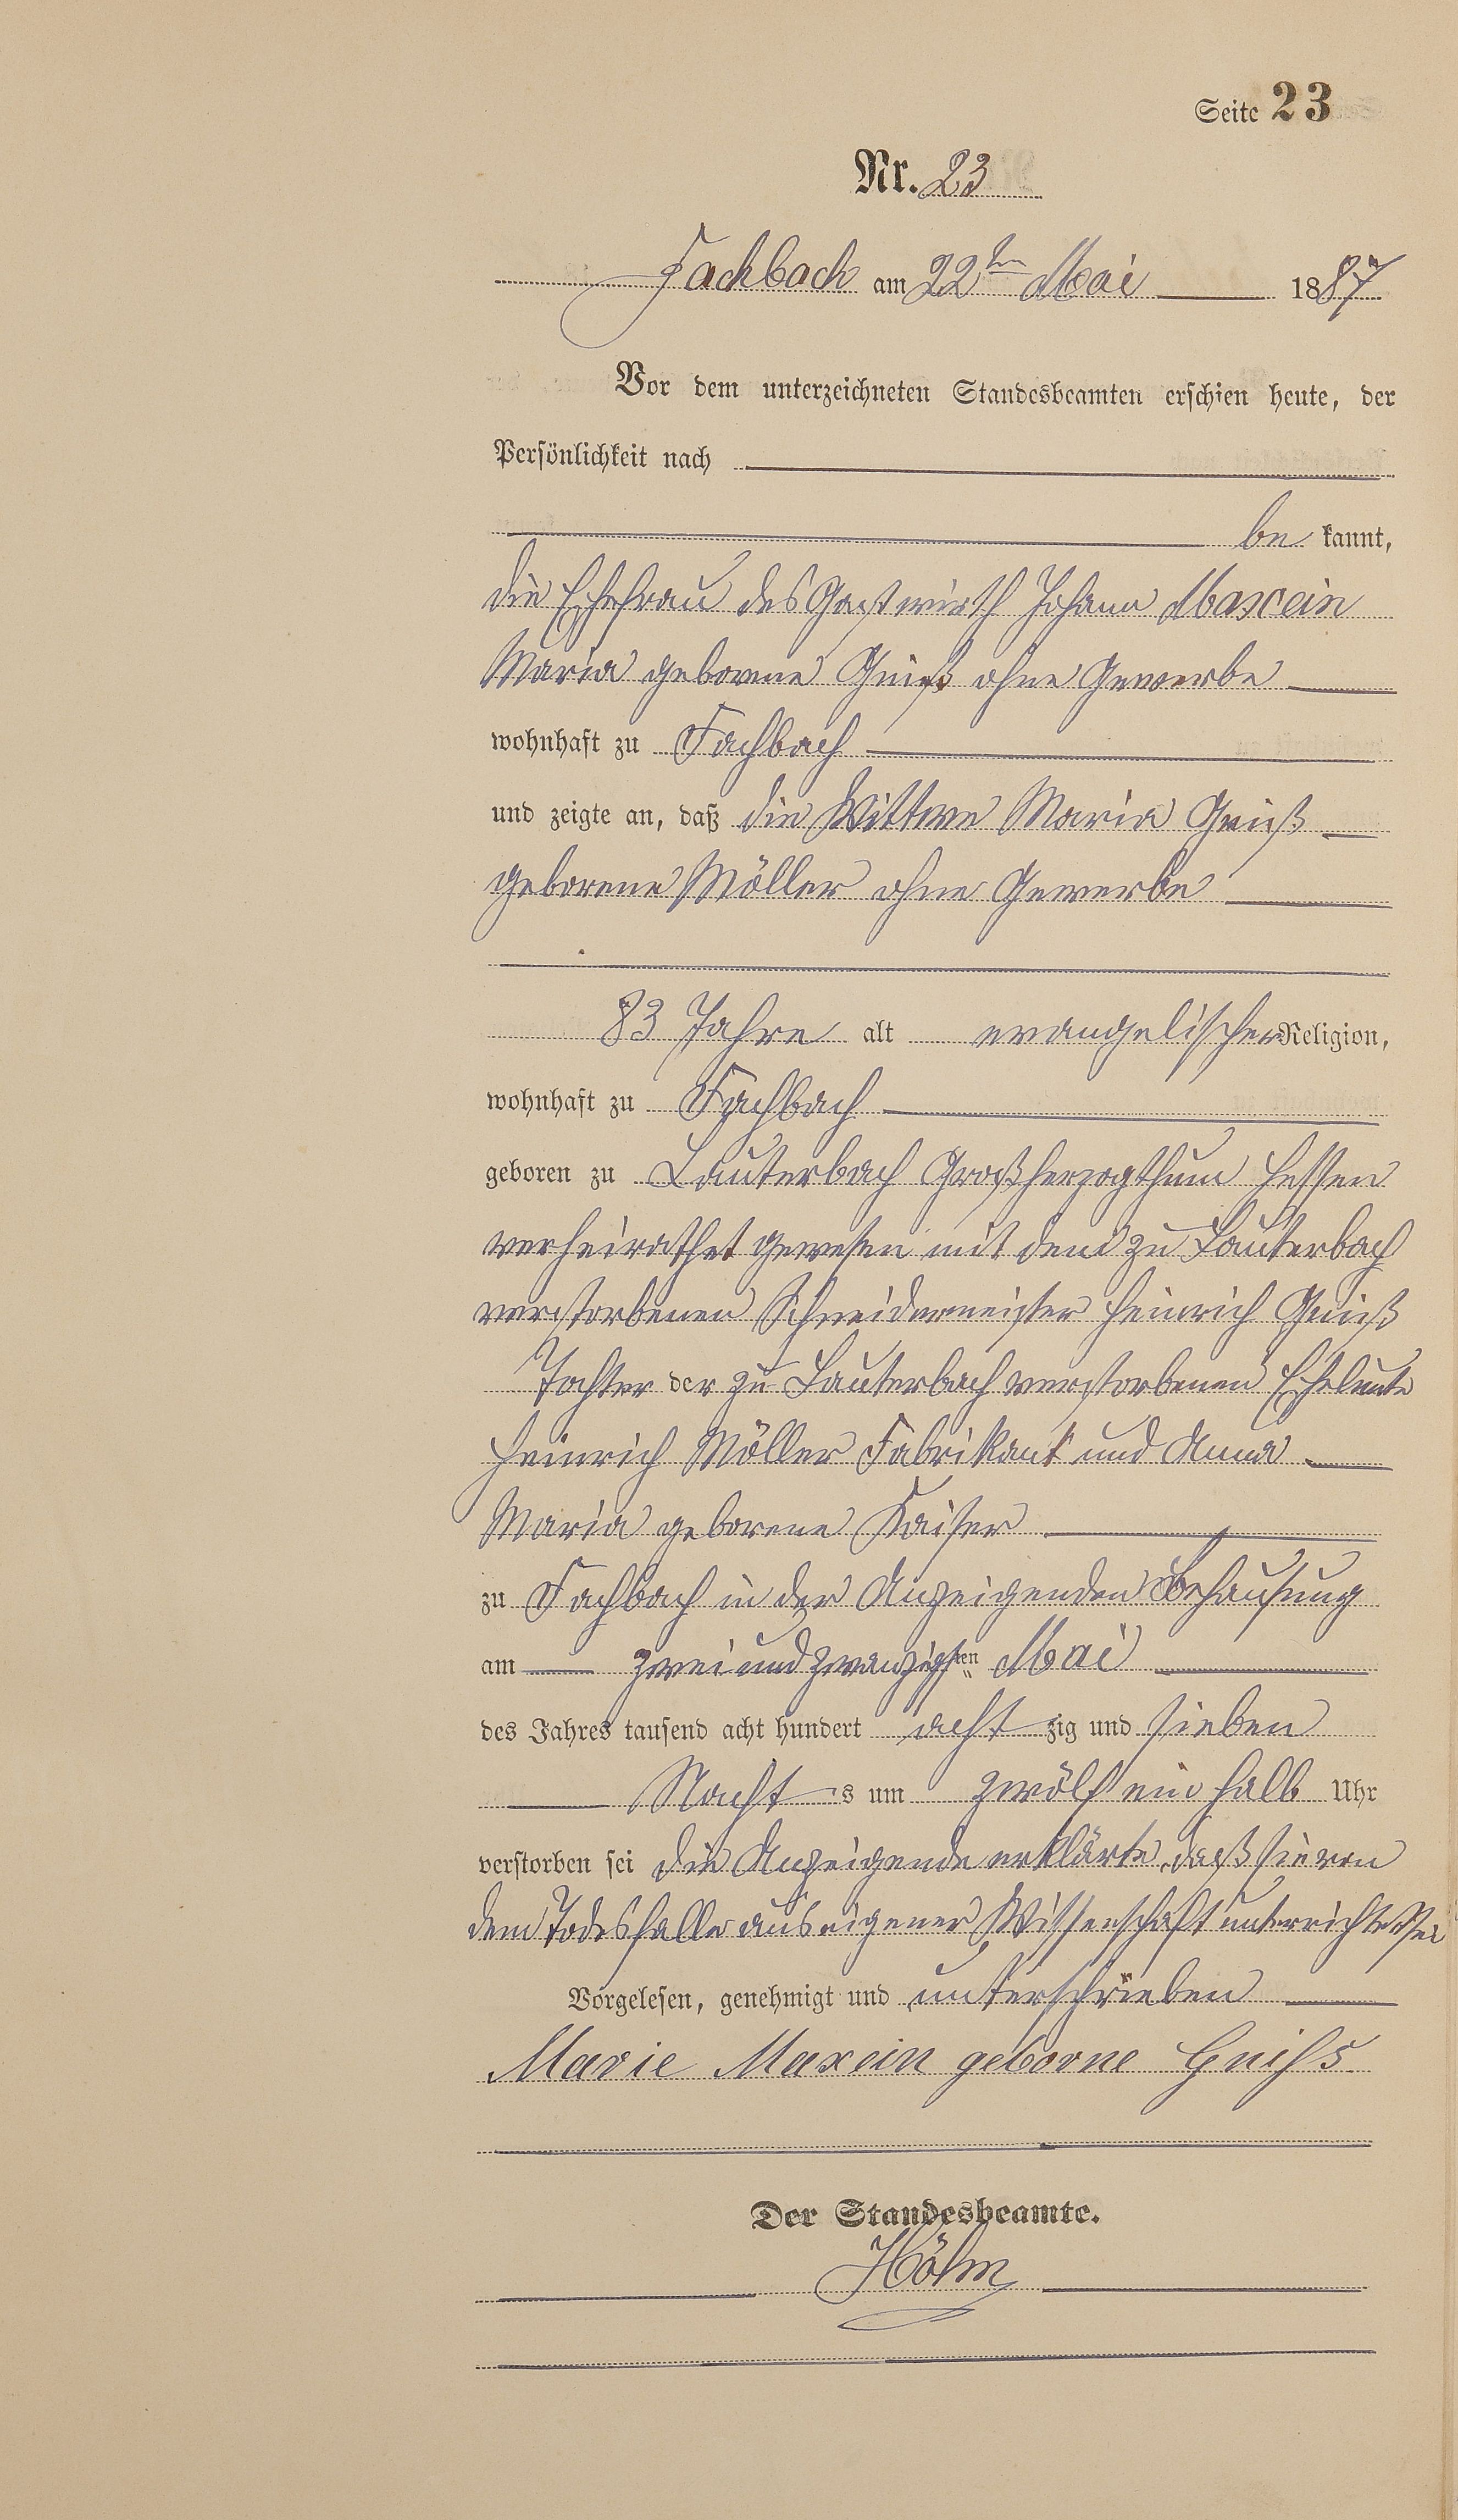 Seite 23
Nr. 23
Fachbach am 22ten Mai 1887
Vor dem unterzeichneten Standesbeamten erschien heute, der
Persönlichkeit nach
be kannt,
die Ehefrau des Gastwirth Johann Maxein
Maria geborene Gniß ohne Gewerbe
wohnhaft zu Fachbach
und zeigte an, daß die Wittwe Maria Gniß
geborene Möller ohne Gewerbe
83 Jahre alt evangelischer Religion,
wohnhaft zu Fachbach
geboren zu Lauterbach Großherzogthum Hessen
verheirathet gewesen mit dem zu Lauterbach
verstorbenen Schneidermeister Heinrich Gniß
Tochter der zu Lauterbach verstorbenen Eheleute
Heinrich Möller Fabrikant und Anna
Maria geborene Kaiser
zu Fachbach in der Anzeigenden Behausung
am zwei und zwanzigsten Mai
des Jahres tausend acht hundert acht zig und sieben
Nacht s um zwölf ein halb Uhr
verstorben sei die Anzeigende erklärte, daß sie von
dem Todesfalle aus eigener Wissenschaft unterrichtet sei
Vorgelesen, genehmigt und unterschrieben
Marie Maxein geborne Gniſs
Der Standesbeamte.